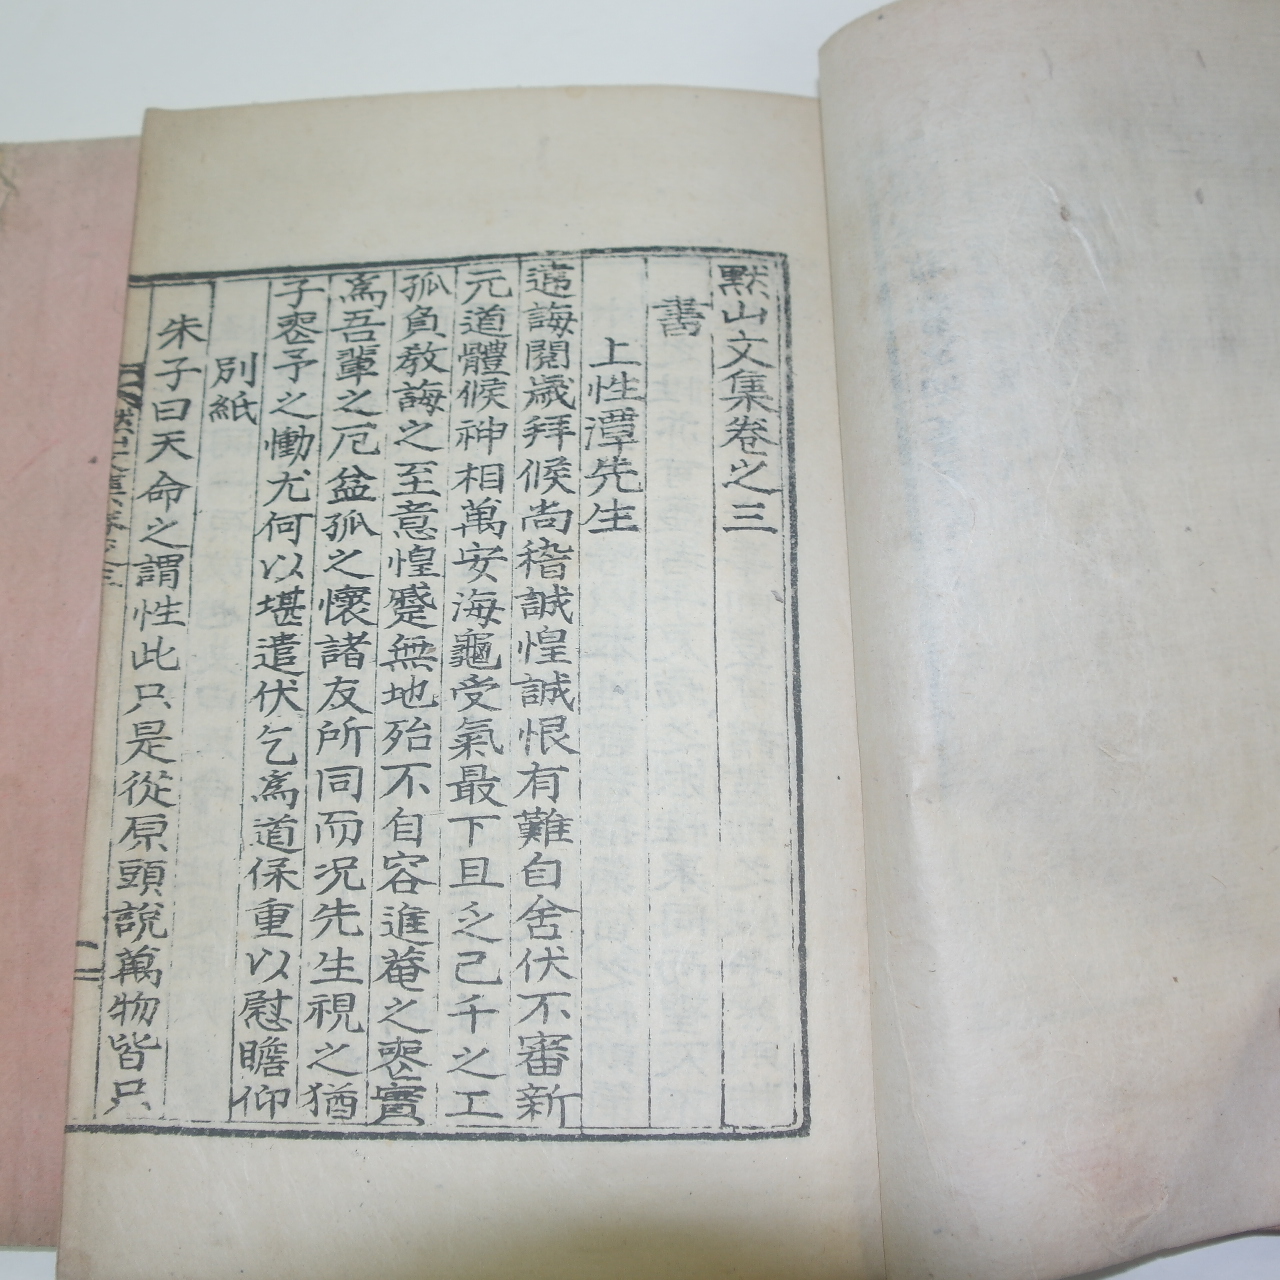 默山文集卷之三
書
上性潭先生
違誨閱歲拜候尚稽誠惶誠恨有難自舍伏不審新
元道體候神相萬安海龜受氣最下且乏己千之工
孤負敎誨之至意惶蹙無地殆不自容進菴之喪實
爲吾輩之厄益孤之懷諸友所同而况先生視之猶
子喪予之慟尤何以堪遣伏乞爲道保重以慰瞻仰
別紙
朱子曰天命之謂性此只是從原頭說萬物皆只
默山文集卷之三
一